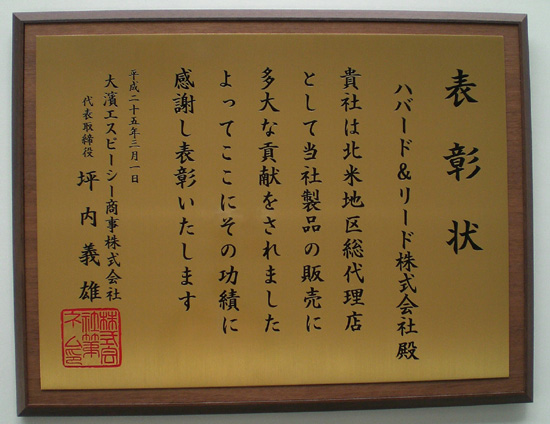 表彰状
ハバード&リード株式会社殿
貴社は北米地区総代理店
として当社製品の販売に
多大な貢献をされました
よってここにその功績に
感謝し表彰いたします
平成二十五年三月一日
大濱エスピーシー商事株式会社
代表取締役 坪内義雄